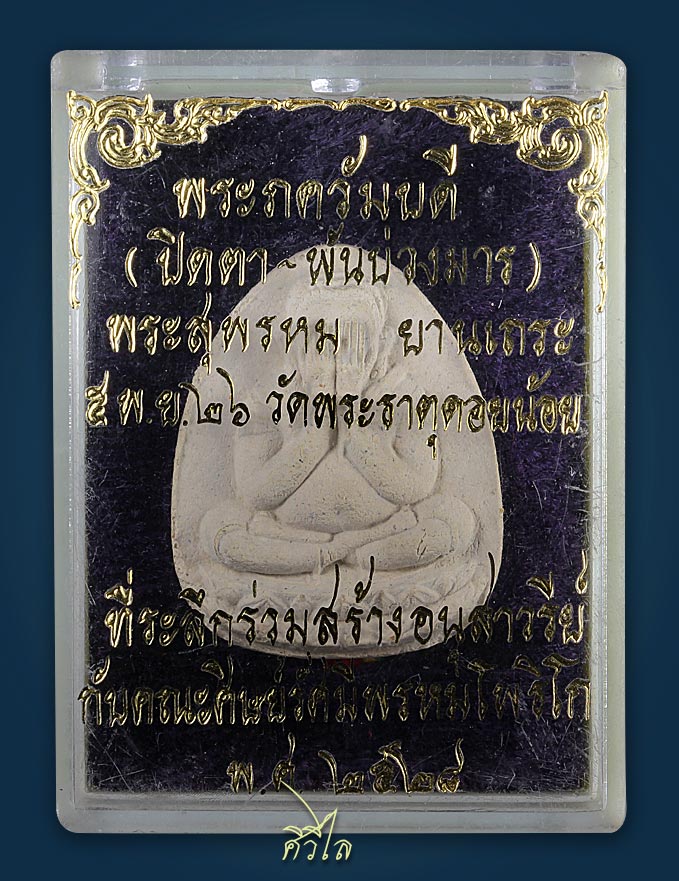 พระภควัมบดี
(ปิดตา~พ้นบ่วงมาร)
พระสุพรหม ยานเถระ
๕ พ.ย.๒๖ วัดพระธาตุดอยน้อย
ที่ระลึกร่วมสร้างอนุสาวรีย์
กับคณะศิษย์รัศมีพรหมโพธิโก
พ.ศ ๒๕๒๘
ศิวิไล